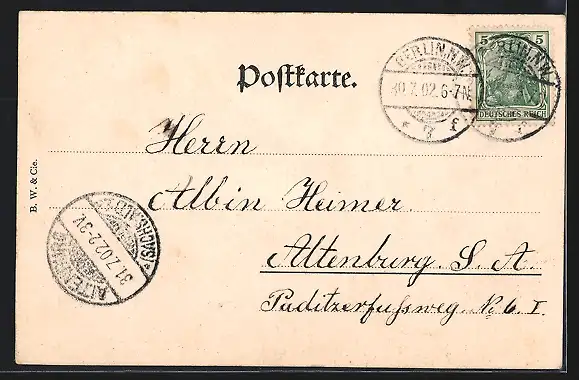 Postkarte.
BERLIN.N.W.
30.7.02.6-7N.
5 5
DEUTSCHES REICH
BERLIN.N.W.
Herrn
Albin Heimer
Altenburg. S. A.
Puditzerfussweg. No 6. I
B. W. & Cie.
ALTENBURG
31.7.02.2-3V.